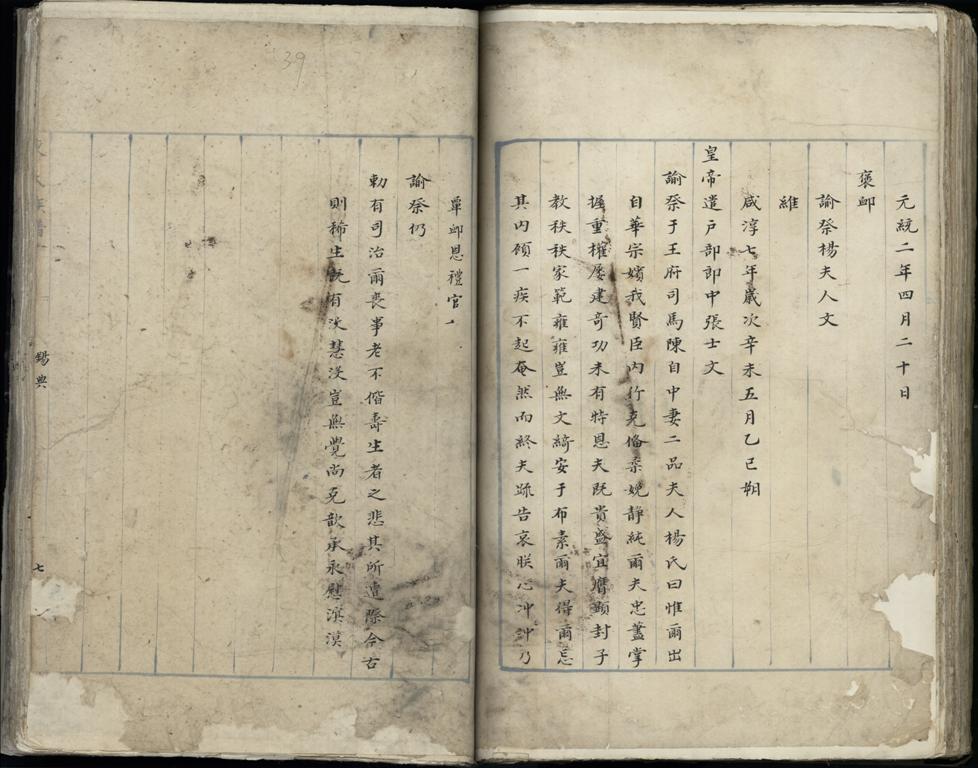 元統二年四月二十日
褒卹
諭祭楊夫人文
維
咸淳七年歲次辛未五月乙巳朔
皇帝遣戸部郎中張士文
諭祭于王府司馬陳自中妻二品夫人楊氏曰惟爾出
自華宗嬪我賢臣內行克脩柔婉靜純爾夫忠藎掌
握重權屡建奇功未有特恩夫既貴盛宜膺顕封子
教秩秩家範雍雍豈無文綺安于布素爾夫得爾忘
其內顧一疾不起奄然而終夫疏告哀朕心冲冲乃
單卹恩禮官一
諭祭仍
勅有司治爾喪事老不偕壽生者之悲其所遭際今古
則稀生既有沒慧沒豈無覺尚克歆承永慰溟漠
錫典
七
39